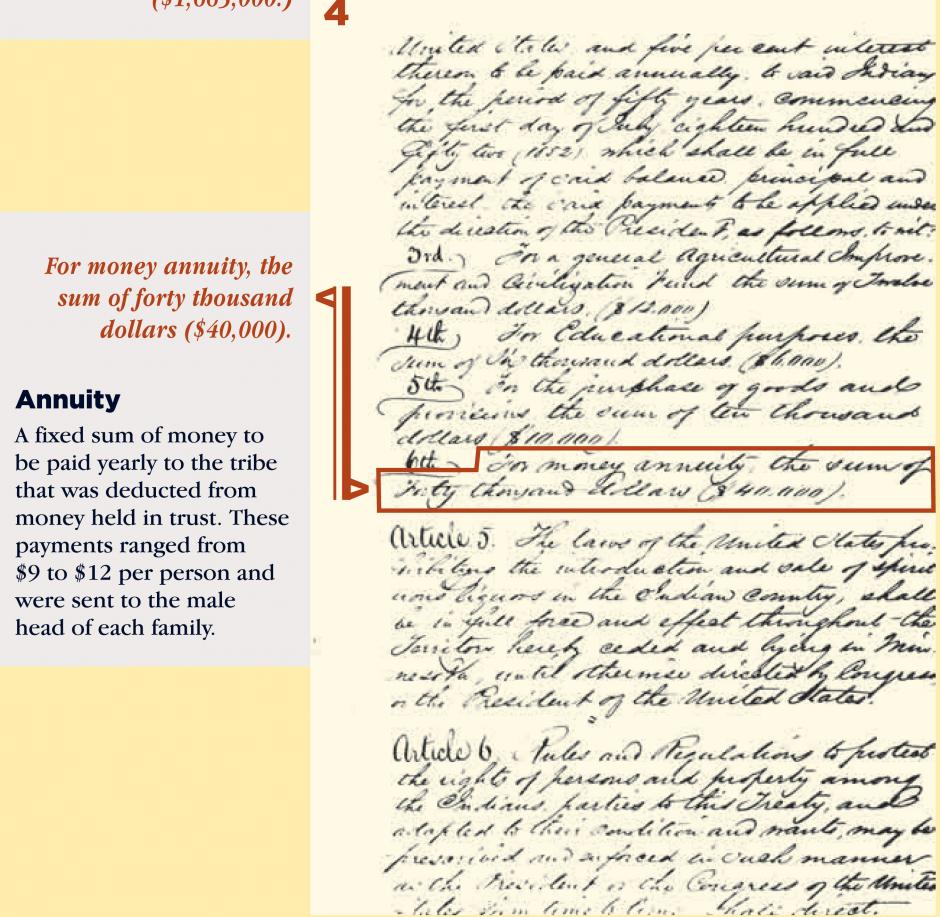 ($1,665,000.)
4
For money annuity, the
sum of forty thousand
dollars ($40,000).
Annuity
A fixed sum of money to
be paid yearly to the tribe
that was deducted from
money held in trust. These
payments ranged from
$9 to $12 per person and
were sent to the male
head of each family.
United States and five per cent interest
thereon to be paid annually, to said Indians
for the period of fifty years, commencing
the first day of July, eighteen hundred and
fifty two (1852) which shall be in full
payment of said balance, principal and
interest, the said payments to be applied under
the direction of the President, as follows, to wit:
3rd. For a general Agricultural Improve-
ment and Civilization Fund the sum of Twelve
thousand dollars. ($12.000)
4th, For Educational purposes, the
sum of Six thousand dollars. ($6.000).
5th For the purchase of goods and
provisions, the sum of ten thousand
dollars ($10.000).
6th For money annuity, the sum of
Forty thousand dollars ($40.000).
Article 5. The laws of the United States pro-
hibiting the introduction and sale of spirit
uous liquors in the Indian country, shall
be in full force and effect throughout the
Territory hereby ceded and lying in Min-
nesota, until otherwise directed by Congress
or the President of the United States.
Article 6. Rules and Regulations to protect
the rights of persons and property among
the Indians, parties to this Treaty, and
adapted to their condition and wants, may be
prescribed and enforced in such manner
as the President or the Congress of the United
States from time to time shall direct.